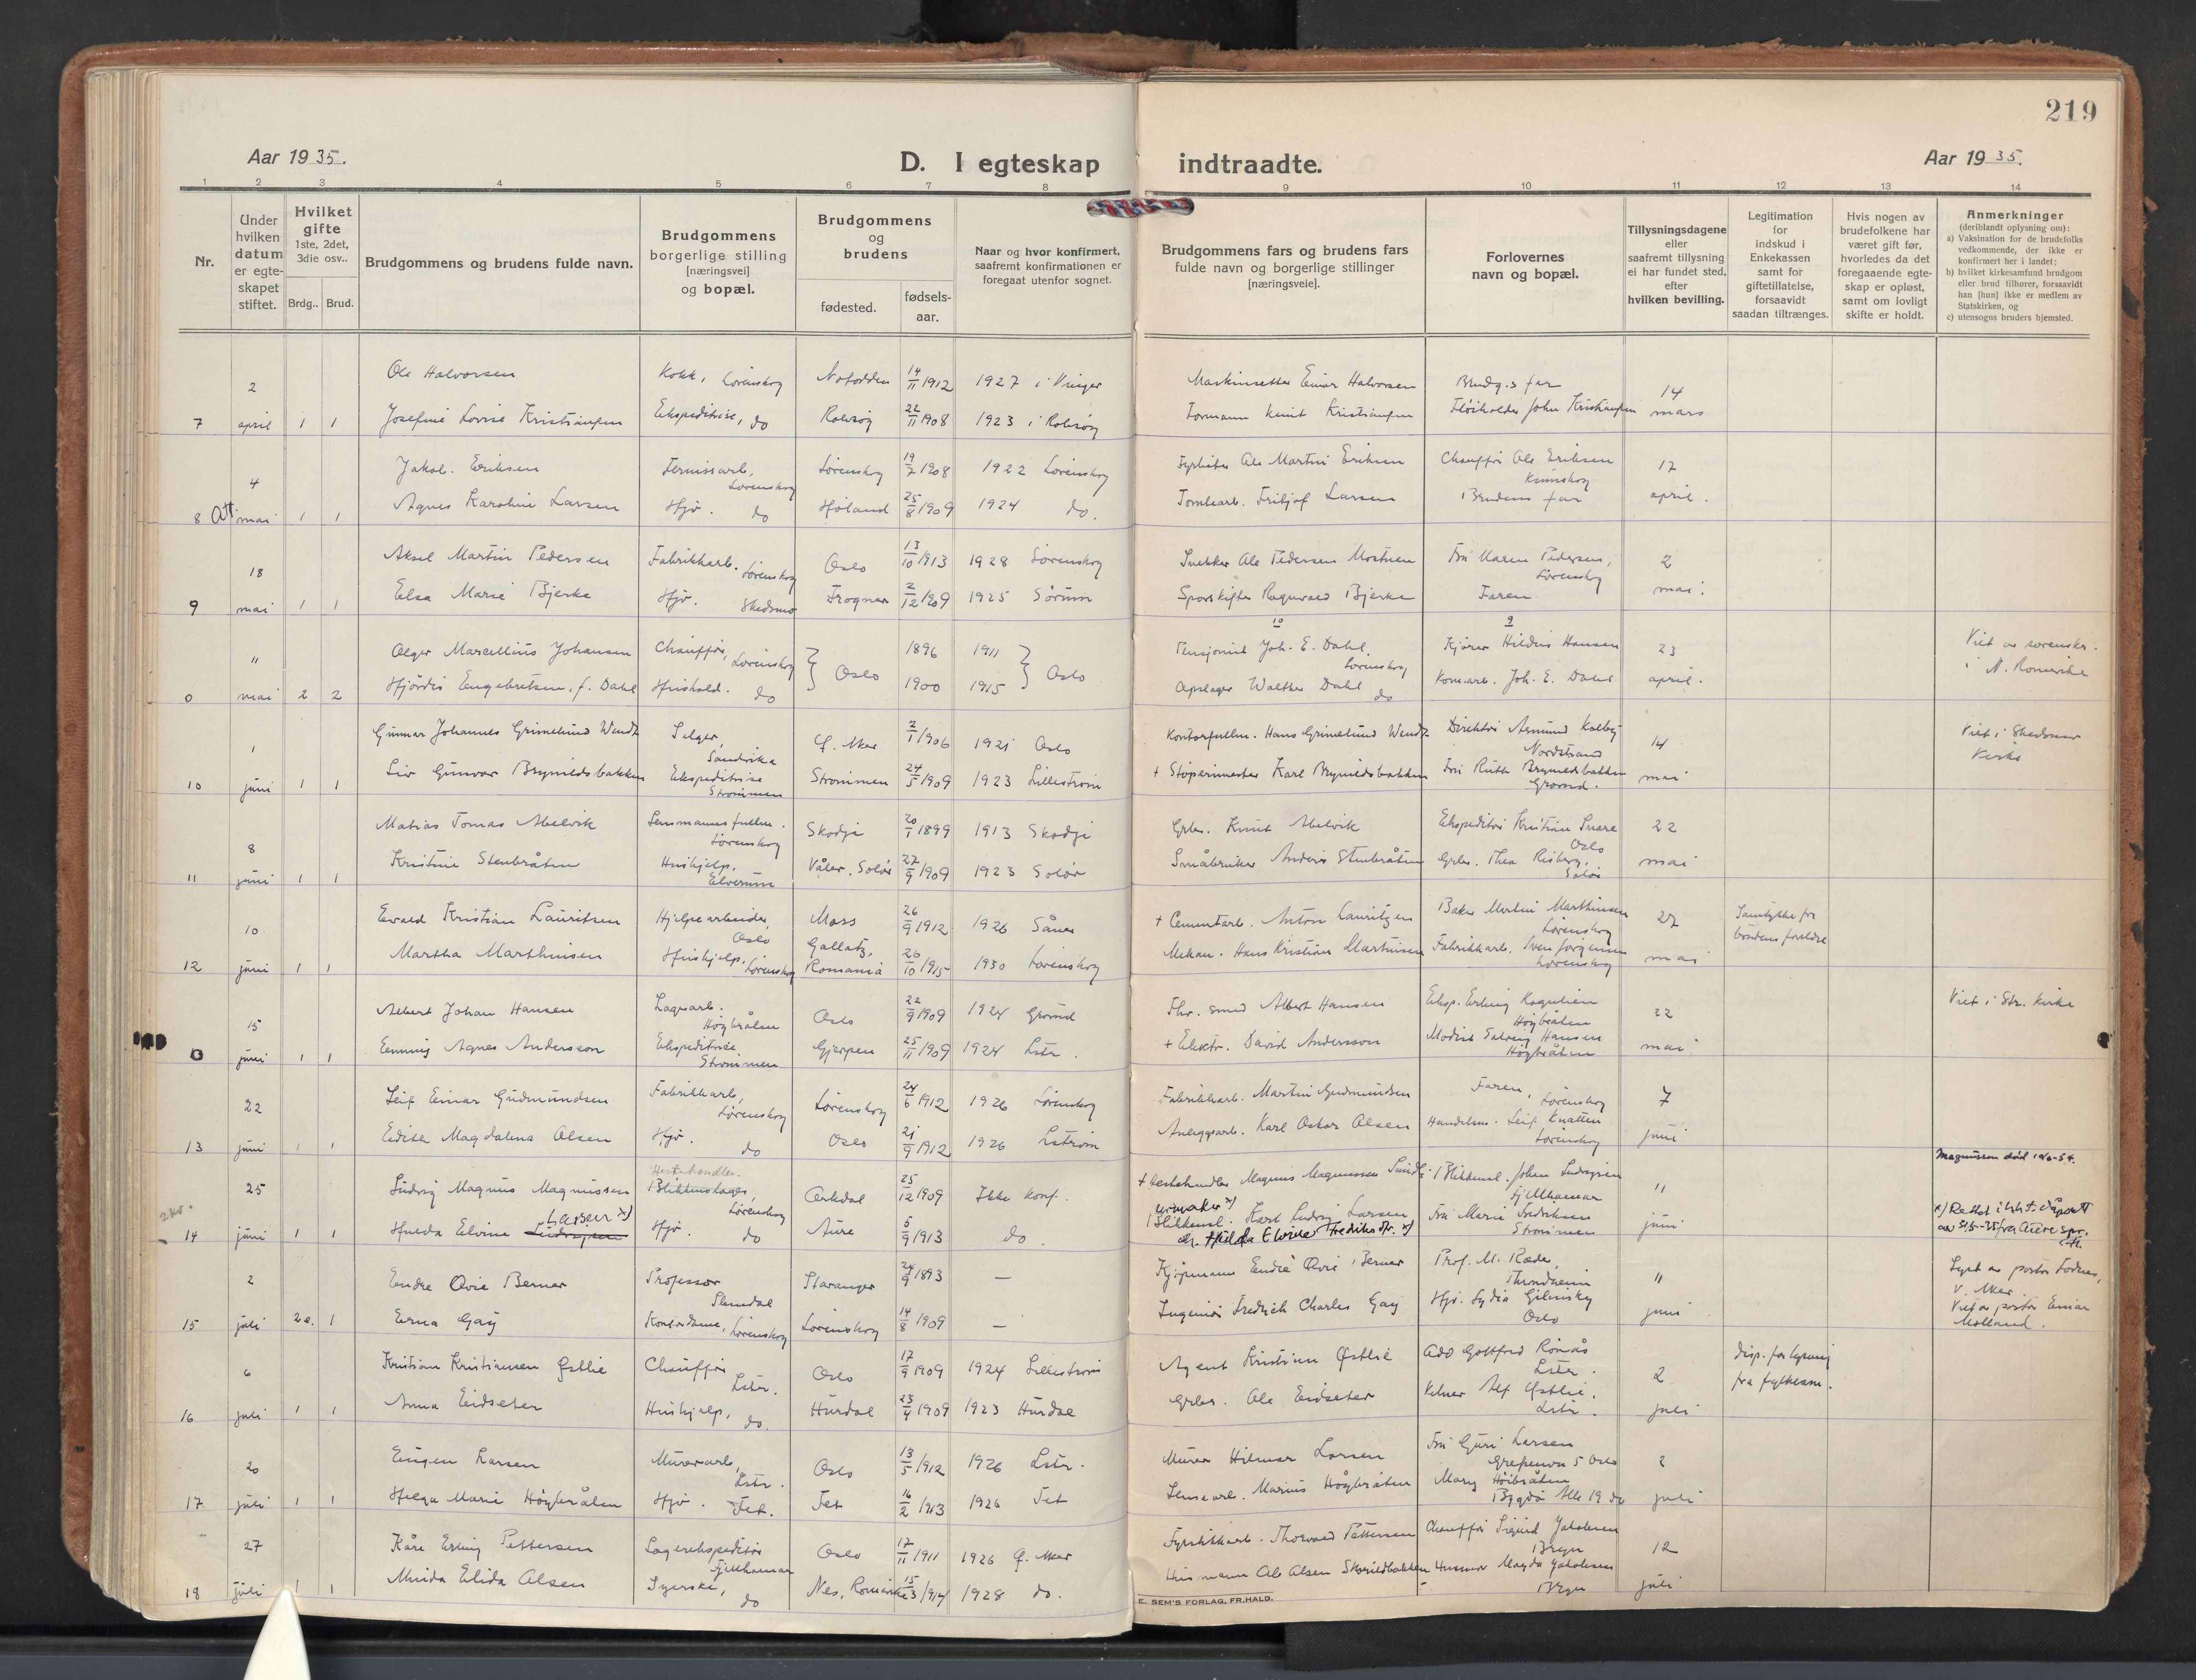 219
Aar 1935.
D. I egteskap indtraadte.
Aar 1935.
1 2 3 4 5 6 7 8 9 10 11 12 13 14
Nr.
Under hvilken datum er egte-skapet stiftet.
Hvilket gifte
1ste, 2det, 3die osv..
Brdg.. Brud.
Brudgommens og brudens fulde navn.
Brudgommens borgerlige stilling
[næringsvei]
og bopæl.
Brudgommens og brudens
fødested.
fødsels-aar.
Naar og hvor konfirmert,
saafremt konfirmationen er
foregaat utenfor sognet.
Brudgommens fars og brudens fars
fulde navn og borgerlige stillinger
[næringsveie].
Forlovernes
navn og bopæl.
Tillysningsdagene
eller
saafremt tillysning
ei har fundet sted,
efter
hvilken bevilling.
Legitimation
for
indskud i
Enkekassen
samt for
giftetillatelse,
forsaavidt
saadan tiltrænges.
Hvis nogen av
brudefolkene har
været gift før,
hvorledes da det
foregaaende egte-
skap er opløst,
samt om lovligt
skifte er holdt.
Anmerkninger
(deriblandt oplysning om):
a) Vaksination for de brudefolks
vedkommende, der ikke er
konfirmert her i landet;
b) hvilket kirkesamfund brudgom
eller brud tilhører, forsaavidt
han [hun] ikke er medlem av
Statskirken, og
c) utensogns bruders hjemsted.
2 Ole Halvorsen Kokk, Lørenskog Notodden 14/11 1912 1927 i Vinger Maskinsetter Einar Halvorsen Brudg.s far 14
7 april 1 1 Josefine Lovise Kristiansen Ekspeditrise, do Rolvsøy 22/11 1908 1923 i Rolvsøy Formann Knut Kristiansen John Kristiansen mars
4 Jakob Eriksen Fernissarb. Lørenskog Lørenskog 19/7 1908 1922 Lørenskog Fyrbøter Ole Martin Eriksen Chauffør Ole Eriksen 17
8 mai 1 1 Agnes Karoline Larsen Hjv. do Høland 25/8 1909 1924 do. Tomtearb. Fritjof Larsen Brudens far april.
18 Aksel Martin Pedersen Fabrikkarb. Lørenskog Oslo 13/10 1913 1928 Lørenskog Snekker Ole Pedersen Mostuen Fru Maren Pedersen, Lørenskog 2
9 mai 1 1 Elsa Marie Bjerke Hjv. Skedsmo Frogner 2/12 1909 1925 Sørum Sporskifter Ragnvald Bjerke Faren mai.
" Olger Marcellius Johansen Chauffør, Lørenskog Oslo 1896 1911 Oslo Pensjonist Joh. E. Dahl Lørenskog Kjører Hildus Hansen 23 Viet av sorenskr.
0 mai 2 2 Hjördis Engebretsen, f. Dahl Hushold. do 1900 1915 Opslager Walther Dahl do Kom.arb. Joh. E. Dahl april. i N. Romerike
1 Gunnar Johannes Grimelund Wendt Selger, Sandvika Ø. Aker 2/1 1906 1921 Oslo Kontorfullm. Hans Grimelund Wendt Direktør Asmund Kolby Nordstrand 14 Viet i Skedsmo
10 juni 1 1 Liv Gunvor Brynildsbakken Ekspeditrise Strømmen Strømmen 24/5 1909 1923 Lillestrøm + Støperimester Karl Brynildsbakken Fru Ruth Brynildsbakken Grorud. mai Kirke
8 Matias Tomas Abelvik Lensmannsfullm. Lørenskog Skodje 20/1 1899 1913 Skodje Grbr. Knut Abelvik Ekspeditør Kristian Snare Oslo 22
11 juni 1 1 Kristine Stenbråten Hushjelp, Elverum Våler, Solør 27/9 1909 1923 Solør Småbruker Anders Stenbråten Grbr. Thea Risberg, Solør mai
10 Ewald Kristian Lauritsen Hjelpearbeider, Oslo Moss 26/9 1912 1926 Såner + Cementarb. Anton Lauritzen Baker Martin Marthinsen Lørenskog 27 Samtykke fra
12 juni 1 1 Martha Marthinsen Hushjelp, Lørenskog Gallatz, Romania 26/10 1915 1930 Lørenskog Mekan. Hans Kristian Martinsen Fabrikkarb. Sven Jørgensen Lørenskog mai brudens foreldre
15 Albert Johan Hansen Lagerarb. Høybråten Oslo 22/9 1909 1924 Grorud Fhv. smed Albert Hansen Eksp. Erling Kognlien Høybråten 22 Viet i Str. kirke
0 juni 1 1 Emmy Agnes Andersson Ekspeditrise Strømmen Gjerpen 25/11 1909 1924 Lstr. + Elektr. David Andersson Modist Solveig Hansen Høybråten mai
22 Leif Einar Gudmundsen Fabrikkarb., Lørenskog Lørenskog 24/6 1912 1926 Lørenskog Fabrikkarb. Martin Gudmundsen Faren, Lørenskog 7
13 juni 1 1 Edith Magdalena Olsen Hjv. do Oslo 21/9 1912 1926 Lstrøm Anleggsarb. Karl Oskar Olsen Handelsm. Leif Knatten Lørenskog juni
Magnussen død 10/6-54.
25 Ludvig Magnus Magnussen Hestehandler. Blikkenslager, Lørenskog Orkdal 25/12 1909 Ikke konf. + Hestehandler Magnus Magnussen Blikkensl. Johan Ludvigsen Fjellhamar "
2 kr. 14 juni 1 1 Hulda Elvine Ludvigsen Larsen x) Hjv. do Aure 5/9 1913 do. urmaker x) Blikkensl. Karl Ludvig Larsen Fru Marie Fredriksen Strømmen juni x) Rettet i h.h.t. dåpsatt
og Hilda Elvine Fredriksdtr. x) av 31/5-35 fra Aure spr.
2 Endre Qvie Berner Professor Slemdal Stavanger 24/9 1893 — Kjøpmann Endre Qvie Berner Prof. M. Ræder, Throndheim " Lyst av pastor
15 juli 2e. 1 Erna Gay Kontordame, Lørenskog Lørenskog 14/8 1909 — Ingeniør Fredrich Charles Gay Hjv. Lydia Gilinsky Oslo juni V. Aker. Viet av pastor Einar Molland.
6 Kristian Kristiansen Østlie Chauffør Lstr. Oslo 17/9 1909 1924 Lillestrøm Agent Kristian Østlie Adv Gottfred Rønås Lstr. 2 Disp. for lysning
16 juli 1 1 Anna Eidseter Hushjelp, do Hurdal 23/4 1909 1923 Hurdal Grbr. Ole Eidseter Kelner Alf Østlie, Lstr. juli fra fylkesm.
20 Eugen Larsen Murerarb., Lstr. Oslo 13/5 1912 1926 Lstr. Murer Hilmar Larsen Fru Guri Larsen Grefsenvn 5 Oslo 2
17 juli 1 1 Helga Marie Høybråten Hjv. Fet. Fet 16/2 1913 1926 Fet Lensearb. Marius Høybråten Mary Høibråten Bygdø Alle 19 do juli
27 Kåre Erling Pettersen Lagerekspeditør Fjellhamar Oslo 17/11 1911 1926 Ø. Aker Fyrstikkarb. Thorvald Pettersen Chauffør Sigurd Jakobsen Bryn 12
18 juli 1 1 Minda Elida Olsen Syerske, do Nes, Romerike 15/3 1914 1928 do. Husmann Ole Olsen Skorildbakken Husmor Magda Jakobsen Bryn juli
E. SEM'S FORLAG, FR.HALD.